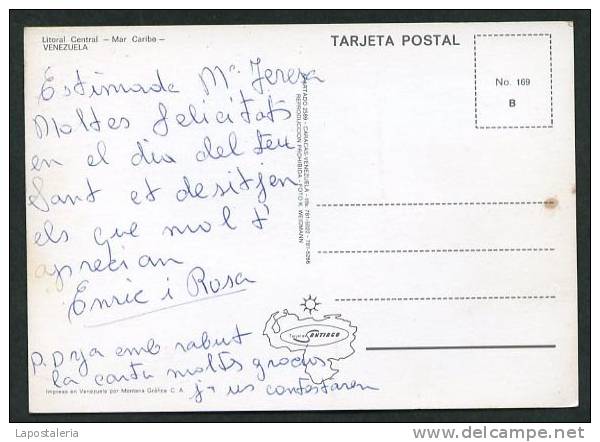 Litoral Central - Mar Caribe -
VENEZUELA
TARJETA POSTAL
No. 169
B
Estimada Mª Teresa
Moltes felicitats
en el dia del teu
Sant et desitjen
els que mol t'
aprecian
Enric i Rosa
P.D ja emb rabut
la carta moltes gracies
ja us contestarem
APARTADO 2589 - CARACAS-VENEZUELA - Tlfs. 781-5022 - 781-5266
REPRODUCCION PROHIBIDA - FOTO K. WEIDMANN
Tarjetas SANTIAGO
Impreso en Venezuela por Montana Gráfica C. A.
© Lapostaleria
delcampe.net